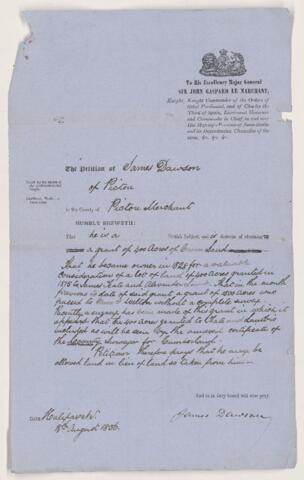 To His Excellency Major General
SIR JOHN GASPARD LE MARCHANT,
Knight, Knight Commander of the Orders of
Saint Ferdinand, and of Charles the
Third of Spain, Lieutenant Governor
and Commander in Chief, in and over
Her Majesty's Province of Nova Scotia
and its Dependencies, Chancellor of the
same, &c. &c. &c.
The Petition of James Dawson
of Pictou
in the County of Pictou Merchant
HUMBLY SHEWETH:
That he is a British Subject, and is desirous of obtaining
a grant of 400 Acres of Crown Land
That he became owner in 1828 for a valuable
consideration of a lot of land of 400 acres granted in
1815 to James and Alexander That in the month
previous to date of such grant a grant of acres was
passed to without a complete survey.
Recently a survey has been made of this grant in which it
appears that the 400 acres granted to and is
included as will be seen by the annexed certificate of
the Deputy Surveyor for Cumberland.
Petitioner therefore prays that he may be
allowed land in lieu of land so taken from him
And as in duty bound will ever pray.
Date Halifax
18th August 1856.
James Dawson